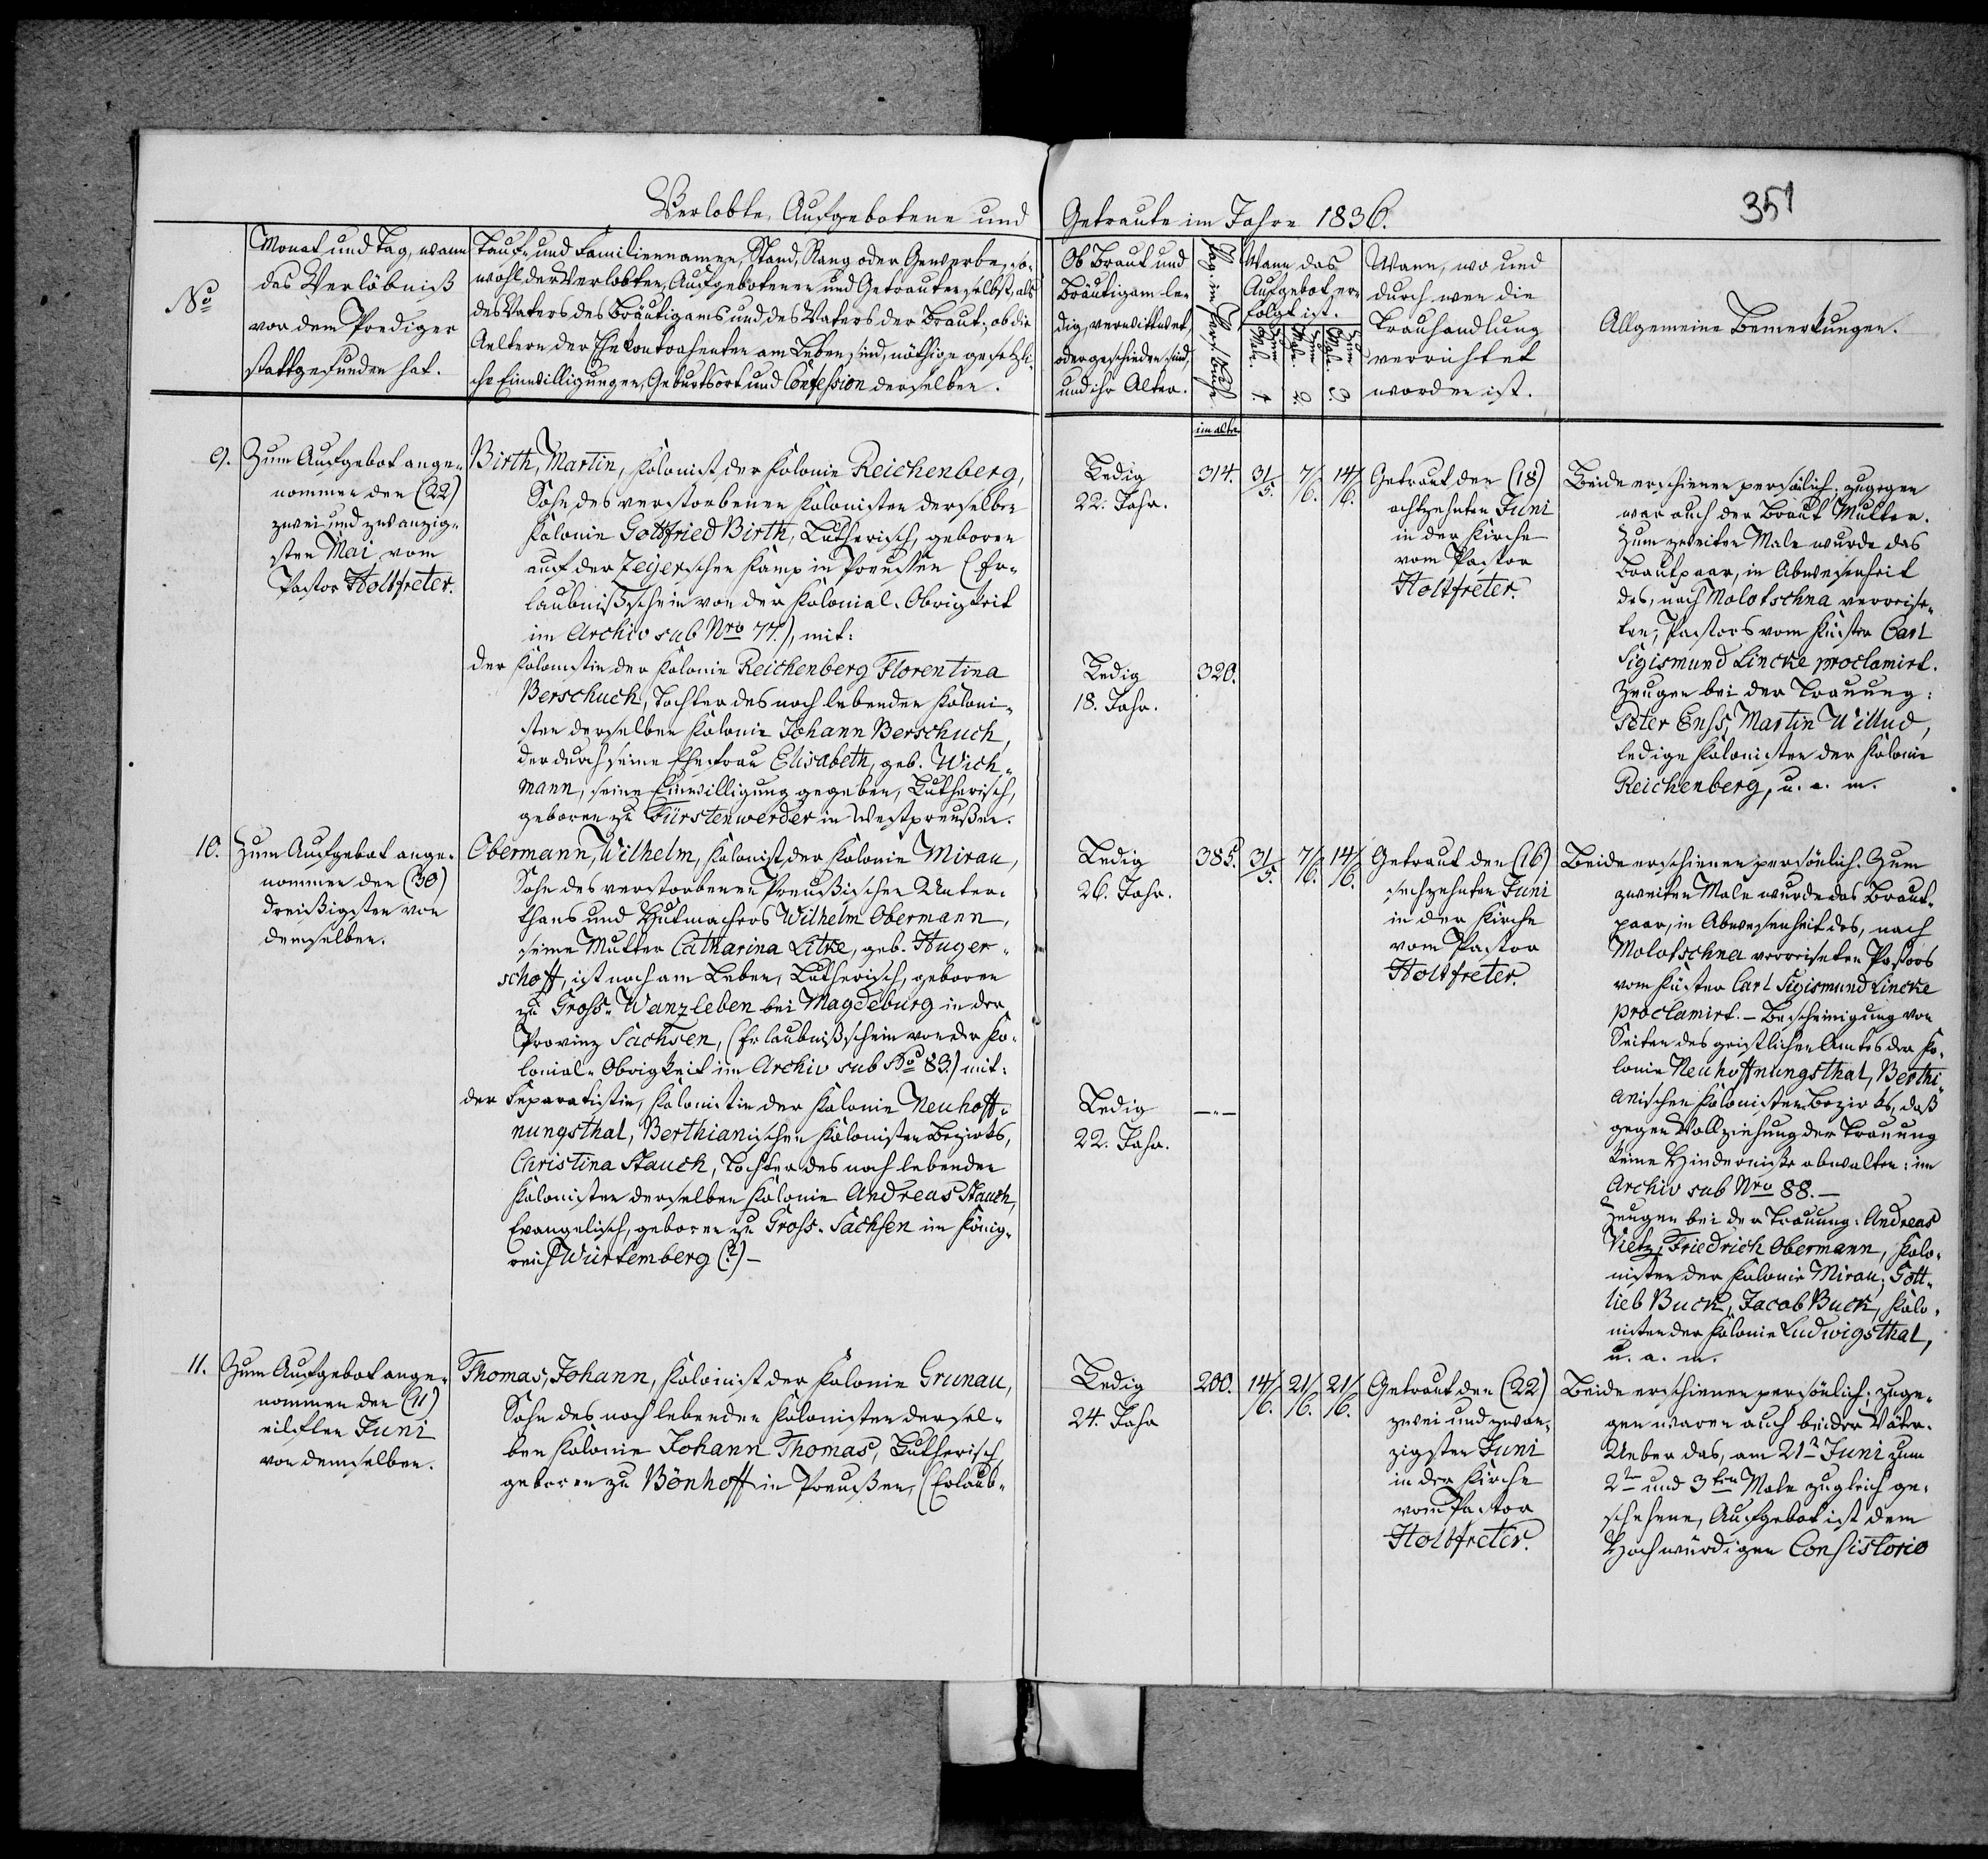 Verlobte, Aufgebotene und Getraute im Jahre 1836.
351
No
Monat und Tag, wann
das Verlöbniß
von dem Prediger
stattgefunden hat.
Tauf- und Familiennamen, Stand, Rang oder Gewerbe, so-
wohl der Verlobten, Aufgebotenen und Getrauten selbst, als
des Vaters des Bräutigams und des Vaters der Braut, ob die
Aeltern der Ehekontrahenten am Leben sind, nöthige gesetzli-
che Einwilligungen, Geburtsort und Confession derselben.
Ob Braut und
Bräutigam le-
dig, verwittwet,
oder geschieden sind,
und ihr Alter.
Pag. im Pers. buche
Wann das
Aufgebot er-
folgt ist.
Zum 1. Male.
Zum 2. Male.
Zum 3. Male.
Wann, wo und
durch wen die
Trauhandlung
verrichtet
worden ist.
Allgemeine Bemerkungen.
9.
Zum Aufgebot ange-
nommen den (22)
zwei und zwanzig-
sten Mai vom
Pastor Holtfreter.
Birth, Martin, Kolonist der Kolonie Reichenberg,
Sohn des verstorbenen Kolonisten derselben
Kolonie Gottfried Birth, Lutherisch, geboren
auf der Zeyerschen Kamp in Preussen (Er-
laubnißschein von der Kolonial-Obrigkeit
im Archiv sub Nro 77.), mit:
der Kolonistin der Kolonie Reichenberg Florentina
Berschuck, Tochter des noch lebenden Koloni-
sten derselben Kolonie Johann Berschuck,
der durch seine Ehefrau Elisabeth, geb. Wich-
mann, seine Einwilligung gegeben, Lutherisch,
geboren zu Fürstenwerder in Westpreußen.
im alten
Ledig
22. Jahr.
314.
31/5.
7/6.
14/6.
Ledig
18. Jahr.
320.
Getraut den (18)
achtzehnten Juni
in der Kirche
vom Pastor
Holtfreter.
Beide erschienen persönlich, zugegen
war auch der Braut Mutter.
Zum zweiten Male wurde das
Brautpaar, in Abwesenheit
des, nach Molotschna verreise-
ten, Pastors vom Küster Carl
Sigismund Lincke proclamirt.
Zeugen bei der Trauung:
Peter Enss, Martin Willud,
ledige Kolonisten der Kolonie
Reichenberg, u. a. m.
10.
Zum Aufgebot ange-
nommen den (30)
dreißigsten von
demselben.
Obermann, Wilhelm, Kolonist der Kolonie Mirau,
Sohn des verstorbenen Preußischen Unter-
thans und Hutmachers Wilhelm Obermann,
seine Mutter Catharina Litke, geb. Huger-
schoff, ist noch am Leben, Lutherisch, geboren
zu Gross-Wanzleben bei Magdeburg in der
Provinz Sachsen, (Erlaubnißschein von der Ko-
lonial-Obrigkeit im Archiv sub No 83.) mit:
der Separatistin, Kolonistin der Kolonie Neuhoff-
nungsthal, Berthianischen Kolonisten Bezirks,
Christina Stauch, Tochter des noch lebenden
Kolonisten derselben Kolonie Andreas Stauch,
Evangelisch, geboren zu Gross-Sachsen im König-
reich Würtemberg (?) —
Ledig
26. Jahr.
385.
31/5.
7/6.
14/6.
Ledig
22. Jahr.
—"—
Getraut den (16)
sechzehnten Juni
in der Kirche
vom Pastor
Holtfreter.
Beide erschienen persönlich. Zum
zweiten Male wurde das Braut-
paar, in Abwesenheit des, nach
Molotschna verreiseten Pastors
vom Küster Carl Sigismund Lincke
proclamirt. — Bescheinigung von
Seiten des geistlichen Amtes der Ko-
lonie Neuhoffnungsthal, Berthi-
anischen Kolonisten Bezirks, daß
gegen Vollziehung der Trauung
keine Hindernisse obwalten: im
Archiv sub Nro 88. —
Zeugen bei der Trauung: Andreas
Vietz, Friedrich Obermann, Kolo-
nisten der Kolonie Mirau; Gott-
lieb Buck, Jacob Buck, Kolo-
nisten der Kolonie Ludwigsthal,
u. a. m.
11.
Zum Aufgebot ange-
nommen den (11)
eilften Juni
von demselben.
Thomas, Johann, Kolonist der Kolonie Grunau,
Sohn des noch lebenden Kolonisten dersel-
ben Kolonie Johann Thomas, Lutherisch,
geboren zu Bönhoff in Preußen, (Erlaub-
Ledig
24. Jahr
200.
14/6.
21/6.
21/6.
Getraut den (22)
zwei und zwan-
zigsten Juni
in der Kirche
vom Pastor
Holtfreter.
Beide erschienen persönlich; zuge-
gen waren auch beider Väter.
Ueber das, am 21n Juni zum
2ten und 3ten Male zugleich ge-
schehene, Aufgebot ist dem
Hochwürdigen Consistorio